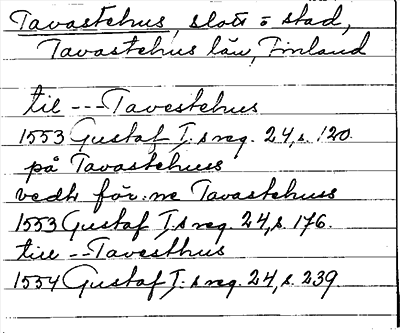 Tavastehus, slott o stad,
Tavastehus län, Finland
till --- Tavestehus
1553 Gustaf I:s reg. 24, s. 120.
på Tavastehuss
vedh för:ne Tavastehuss
1553 Gustaf I:s reg. 24, s. 176.
till -- Tavesthus
1554 Gustaf I:s reg. 24, s. 239.